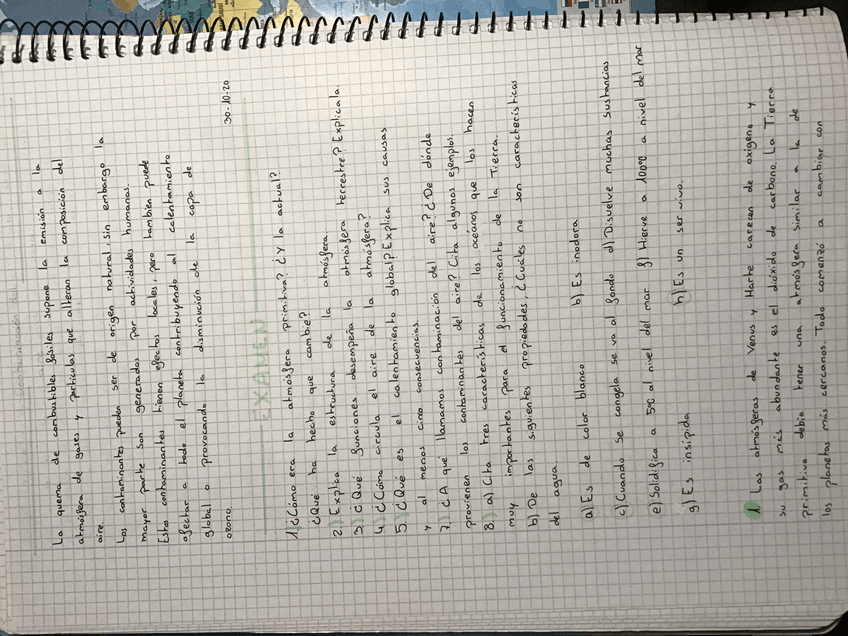 La quema de combustibles fósiles supone la emisión a la
atmósfera de gases y partículas que alteran la composición del
aire.
Los contaminantes pueden ser de origen natural, sin embargo la
mayor parte son generados por actividades humanas.
Estos contaminantes tienen efectos locales, pero tambien puede
afectar a todo el planeta contribuyendo al calentamiento
global o provocando la disminución de la capa de
ozono.
30-10-20
EXAMEN
1. ¿Cómo era la atmósfera primitiva? ¿Y la actual?
¿Qué ha hecho que cambie?
2. Explica la estructura de la atmósfera
3. ¿Qué funciones desempeña la atmósfera terrestre? Explica la
4. ¿Cómo circula el aire de la atmósfera?
5. ¿Qué es el calentamiento global? Explica sus causas
y al menos cinco consecuencias.
7. ¿A qué llamamos contaminación del aire? ¿De dónde
provienen los contaminantes del aire? Cita algunos ejemplos.
8. a) Cita tres características de los océanos que los hacen
muy importantes para el funcionamiento de la Tierra.
b) De las siguientes propiedades, ¿Cuáles no son características
del agua
a) Es de color blanco b) Es inodora
c) Cuando se congela se va al fondo d) Disuelve muchas sustancias
e) Solidifica a 5ºC al nivel del mar f) Hierve a 100ºC a nivel del mar
g) Es insípida h) Es un ser vivo.
1. Las atmósferas de Venus y Marte carecen de oxígeno y
su gas más abundante es el dióxido de carbono. La Tierra
primitiva debía tener una atmósfera similar a la de
los planetas más cercanos. Todo comenzó a cambiar con